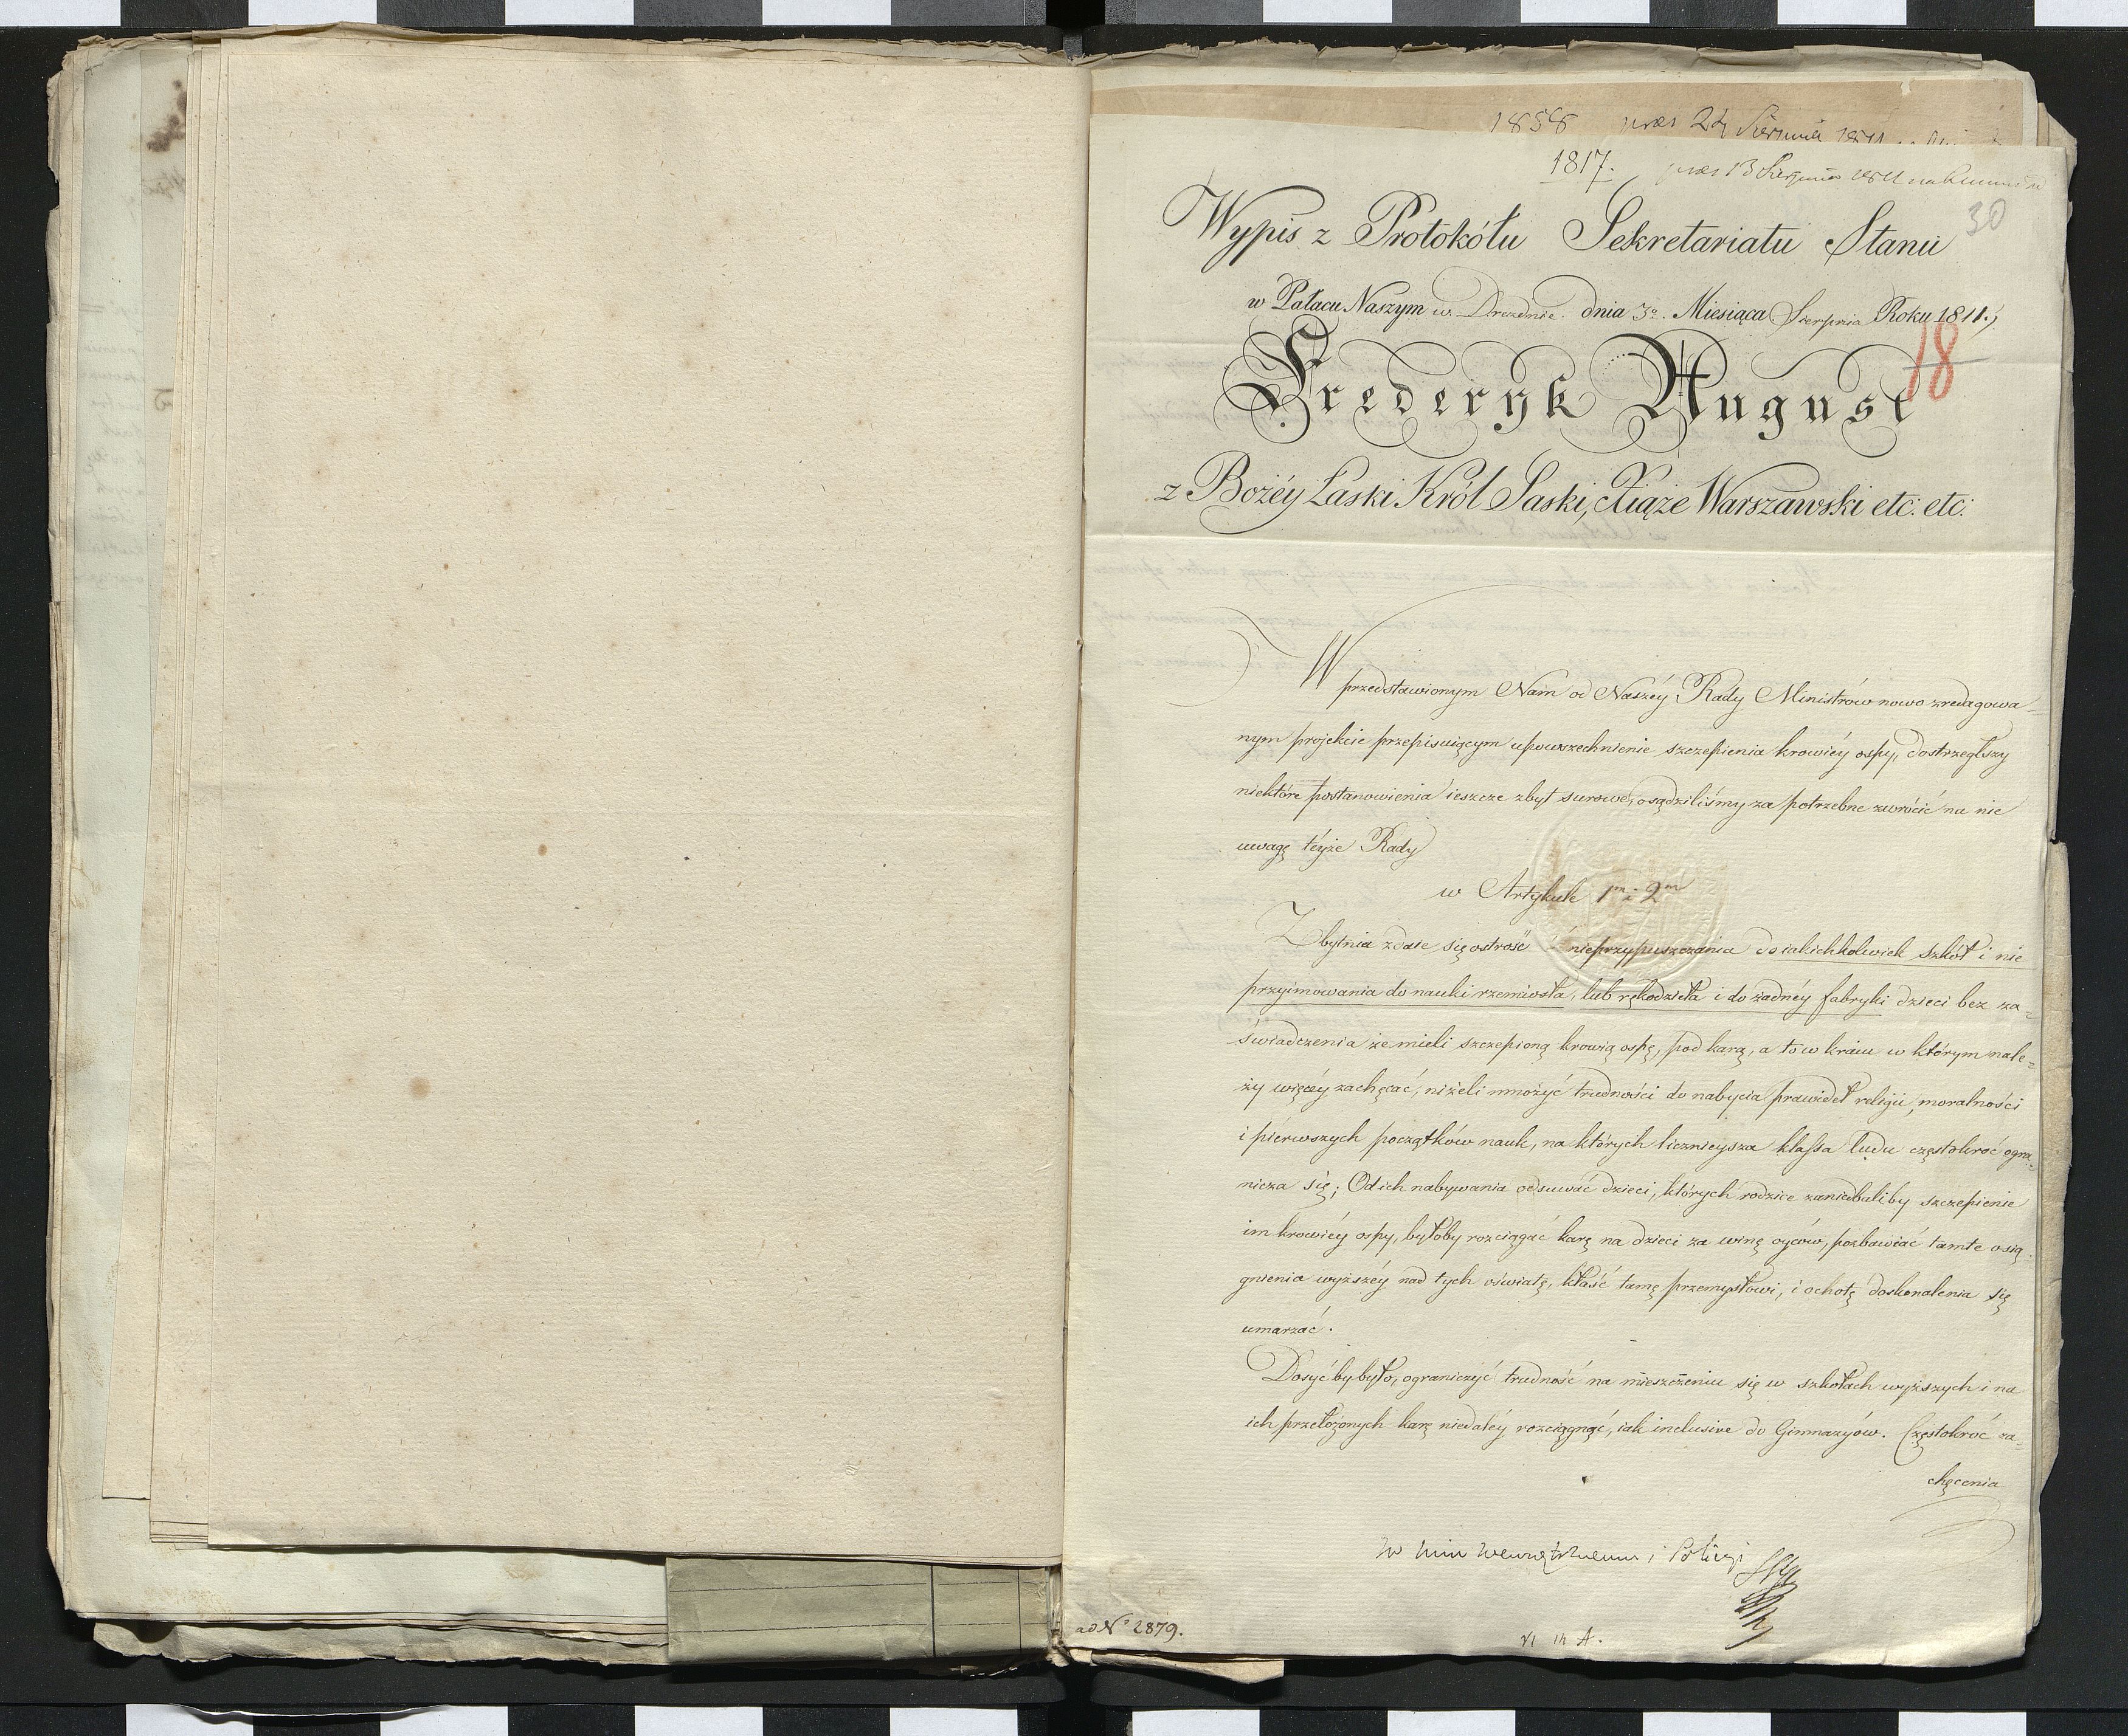 1858 präs 24 Sierpnia 1811
1817. präs 13 Sierpnia 1811
30
Wypis z Protokółu Sekretariatu Stanu
w Pałacu Naszym w Dreznie. dnia 3o. Miesiąca Sierpnia Roku 1811.
18
Frederyk August
z Bożéy Łaski Król Saski, Xiąże Warszawski etc: etc:
W przedstawionym Nam od Naszéy Rady Ministrów nowo zredagowa-
nym projekcie przepisuiącym upowszechnienie szczepienia krowiéy ospy, dostrzegłszy
niektóre postanowienia ieszcze zbyt surowe, osądziliśmy za potrzebne zwrócić na nie
uwagę téyże Rady
w Artykule 1m i 2m
Zbytnia zdaie się ostrość nieprzypuszczania do iakichkolwiek szkół i nie
przyimowania do nauki rzemiosła, lub rękodzieła i do żadnéy fabryki dzieci bez za=
świadczenia że mieli szczepioną krowią ospę, pod karą, a to w kraiu w którym nale=
ży więcéy zachęcać, niżeli mnożyć trudności do nabycia prawideł religii, moralności
i piérwszych początków nauk, na których licznieysza klassa ludu częstokroć ogra=
nicza się; Od ich nabywania odsuwać dzieci, których rodzice zaniedbaliby szczepienie
im krowiéy ospy, byłoby rozciągać karę na dzieci za winę oyców, pozbawiać tamte osią-
gnienia wyższéy nad tych oświatę, kłaść tamę przemysłowi, i ochotę doskonalenia się
umarzać.
Dosyć by było, ograniczyć trudność na mieszczeniu się w szkołach wyższych i na
ich przełożonych karę niedaléy rozciągnąć, iak inclusive do Gimnazyów. Częstokroć za-
chęcenia
W Min Wewnętrznemu i Policyi
ad No 2879.